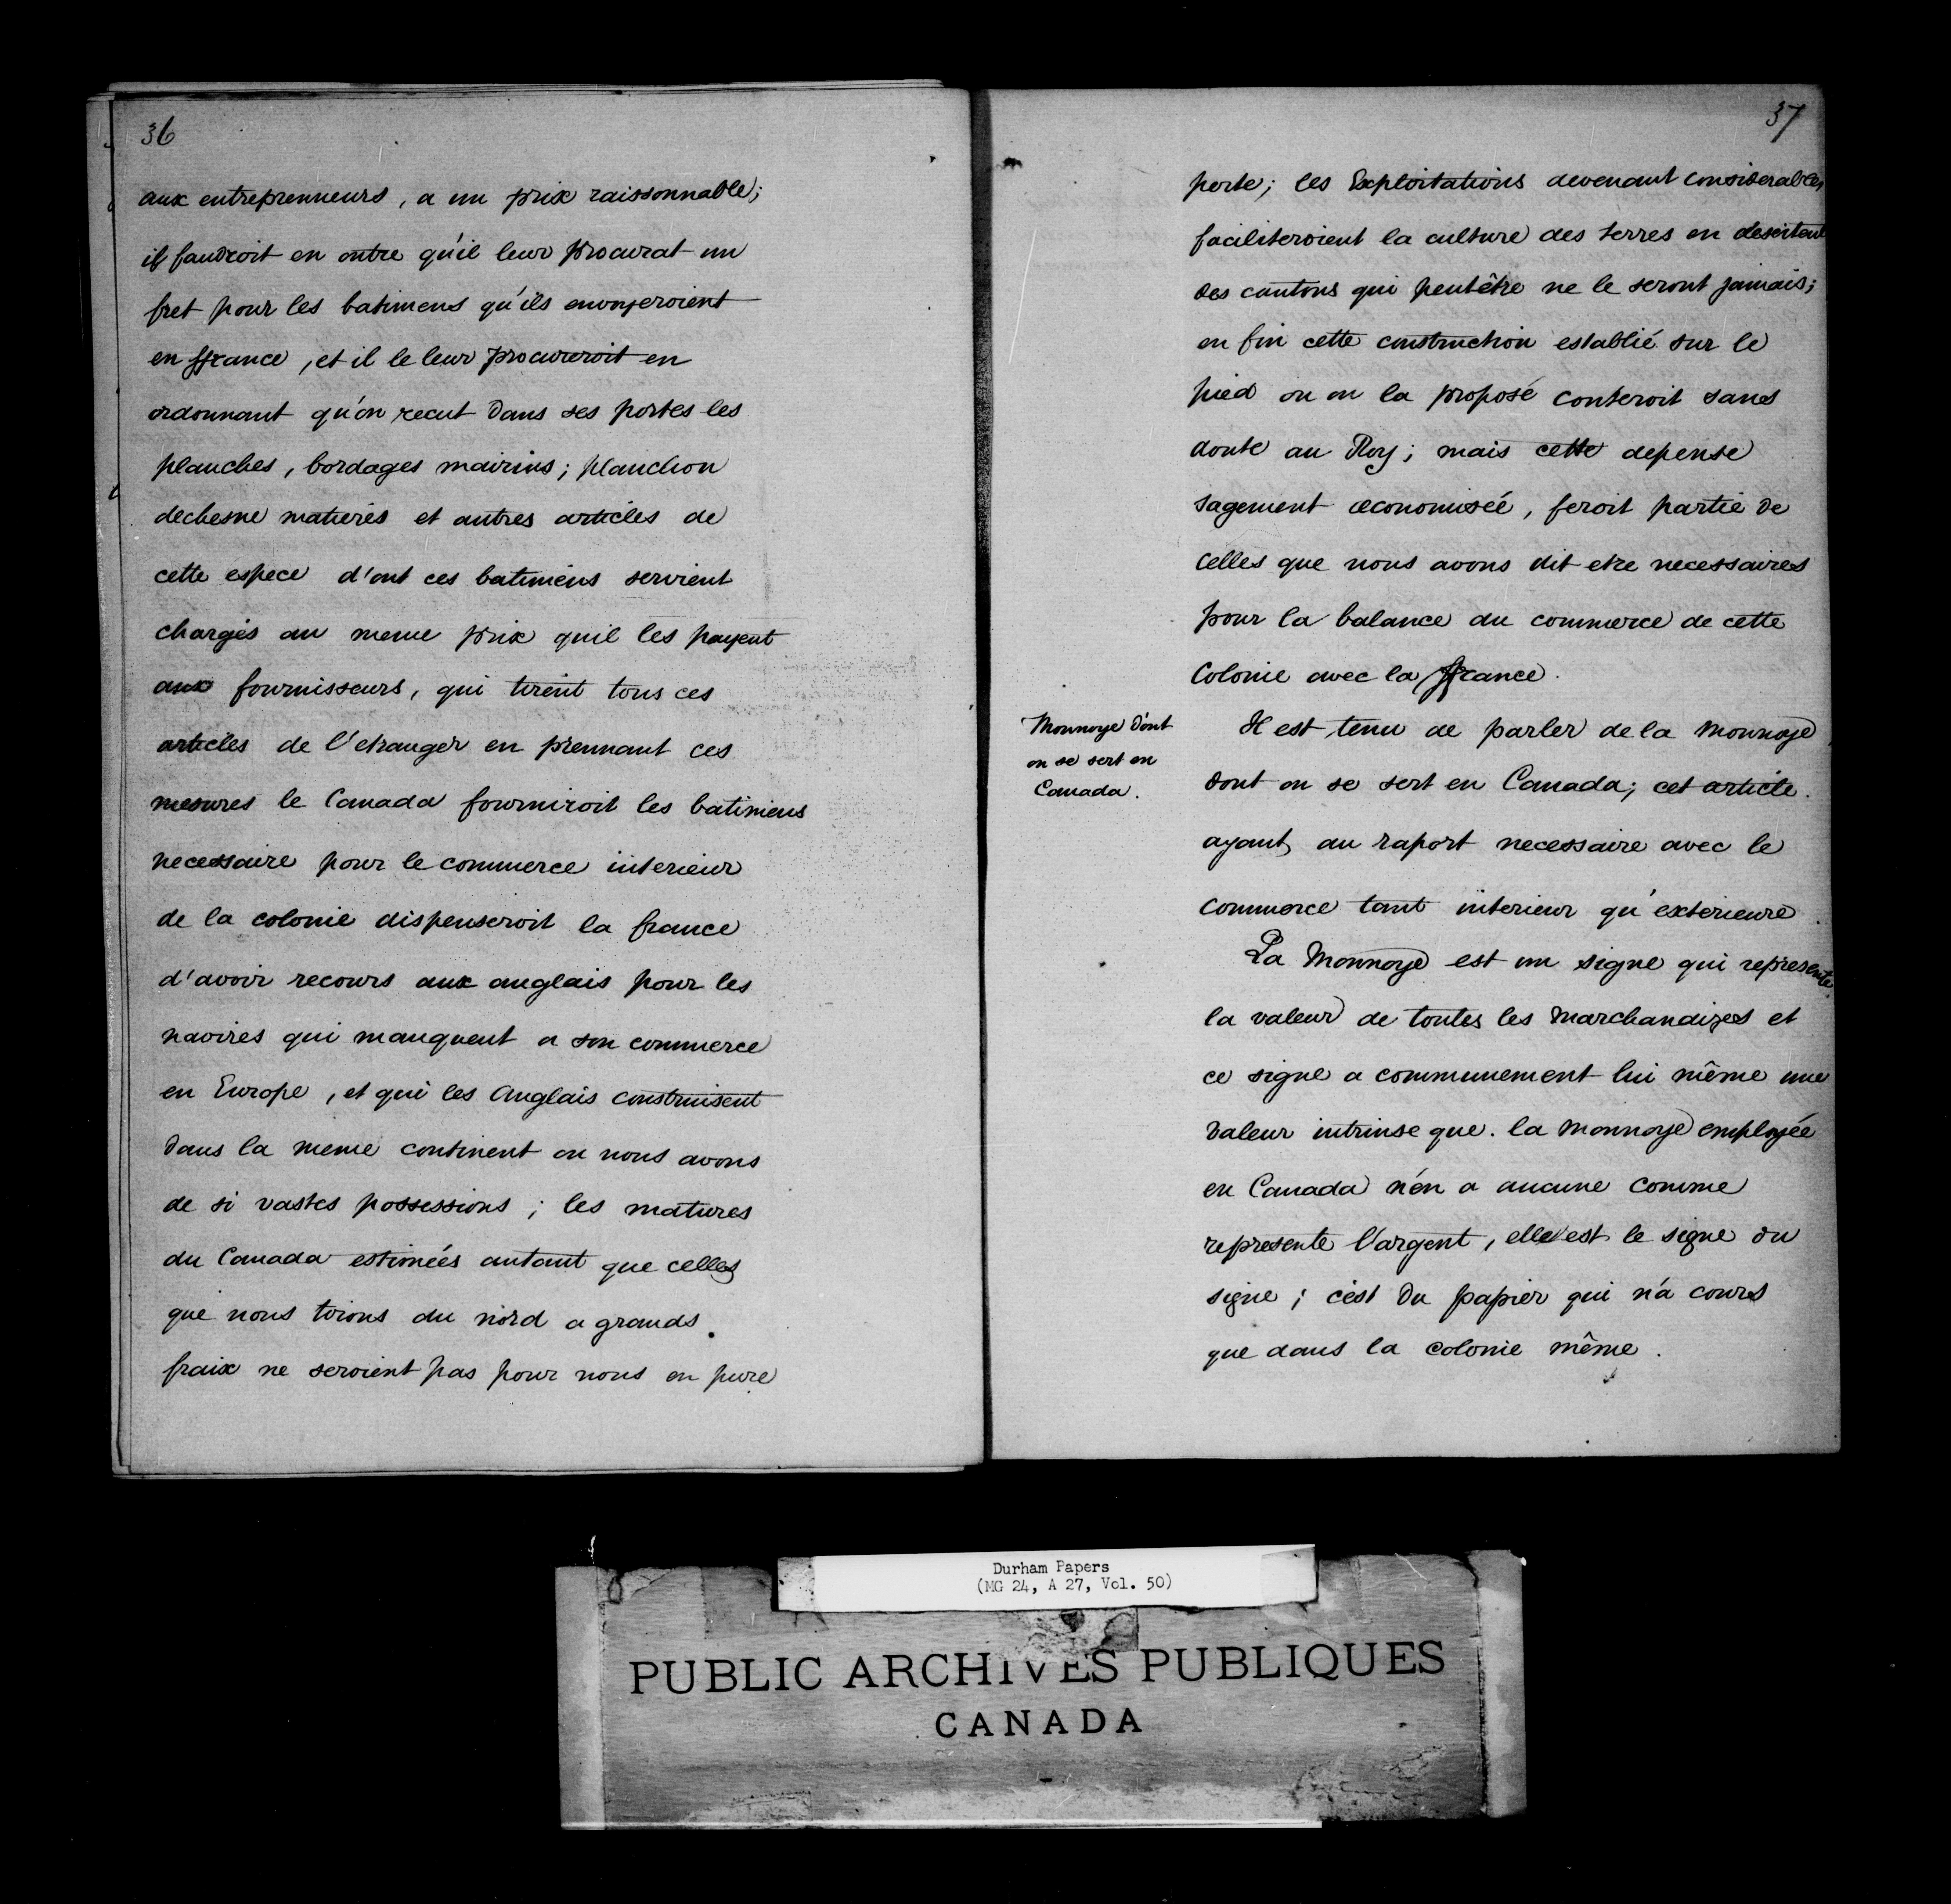 36
aux entreprenneurs, a un prix raissonnable;
il faudroit en outre qu'il leur procurat un
fret pour les batimens qu'ils envoyeroient
en ffrance, et il le leur procureroit en
ordonnant qu'on recut dans ses portes les
planches, bordages mairins; planchon
dechesne matieres et autres articles de
cette espece d'ont ces batimens servient
chargés au meme prix quil les payent
aux fournisseurs, qui tirent tous ces
articles de l'etranger en prennant ces
mesures le Canada fourniroit les batimens
necessaire pour le commerce interieur
de la colonie dispenseroit la france
d'avoir recours aux anglais pour les
navires qui manquent a son commerce
en Europe, et qui les Anglais construisent
dans la meme continent ou nous avons
de si vastes possessions; les matures
du Canada estimées autant que celles
que nous tirons du nord a grands
fraix ne seroient pas pour nous en pure
37
perte; les Exploitations devenant considerables
faciliteroient la culture des terres en
des cantons qui peutêtre ne le seront jamais;
en fin cette construction establié sur le
pied ou on la proposé couteroit sans
doute au Roy; mais cette depense
sagement œconomisée, feroit partie de
celles que nous avons dit etre necessaires
pour la balance du commerce de cette
Colonie avec la ffrance.
Monnoye d'ont
on se sert en
Canada.
Il est tenu de parler de la Monnoye
dont on se sert en Canada; cet article.
ayant au raport necessaire avec le
commerce tant interieur qu'exterieure.
La Monnoye est un signe qui represente
la valeur de toutes les Marchandizes et
ce signe a communement lui même une
valeur intrinse que. la Monnoye employée
en Canada n'en a aucune comme
represente l'argent, elle est le signe du
signe; c'est du papier qui n'a cours
que dans la colonie même.
Durham Papers
(MG 24, A 27, Vol. 50)
PUBLIC ARCHIVES PUBLIQUES
CANADA